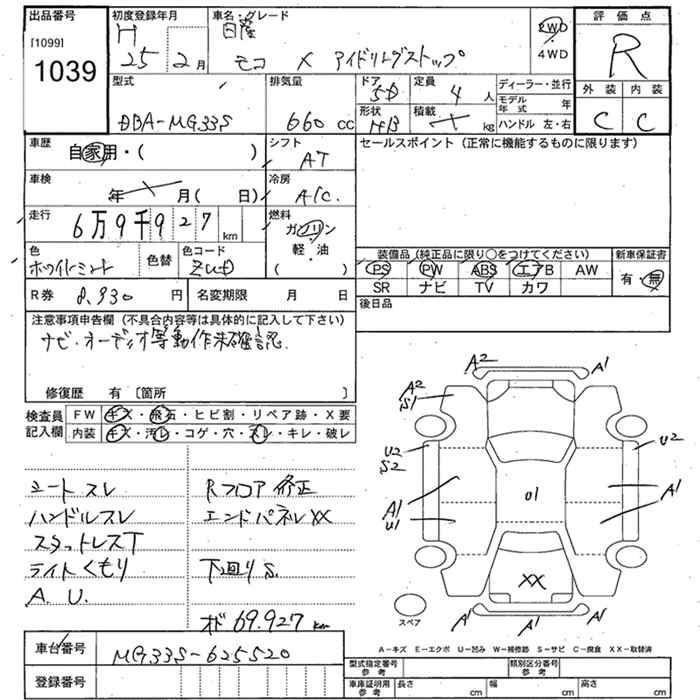 出品番号 初度登録年月 車名・グレード 評価点
[1099] H 日産 2WD R
1039 25 2月 モコ X アイドリングストップ 4WD
型式 排気量 ドア 定員 ディーラー・並行 外装 内装
DBA-MG33S 660 cc 5D 4人 モデル年式 年 C C
形状 積載 ハンドル 左・右
HB kg
車歴 自家用・( ) シフト AT セールスポイント (正常に機能するものに限ります)
車検 年 月( 日) 冷房 A/C
走行 6万9千927 km 燃料 ガソリン
軽・油
( )
色 ホワイトミント 色替 色コード ZUD
装備品 (純正品に限り○をつけてください) 新車保証書
PS PW ABS エアB AW 有・無
SR ナビ TV カワ
R券 8,930円 名変期限 月 日 後日品
注意事項申告欄 (不具合内容等は具体的に記入して下さい)
ナビ・オーディオ等動作未確認.
修復歴 有 〔箇所 〕
検査員 FW キズ・飛石・ヒビ割・リペア跡・X要
記入欄 内装 キズ・汚レ・コゲ・穴・スレ・キレ・破レ
シートスレ Rフロア修正
ハンドルスレ エンドパネルXX
スタッドレスT
ライトくもり 下廻りS.
A.U.
オド 69.927 km
A2 A1
A2
S1
U2
S2
U2
A1
U1
01
A1
A1
XX
A1 A1 A1
スペア
A-キズ E-エクボ U-凹み W-補修跡 S-サビ C-腐食 XX-取替済
車台番号 MG33S-625520
登録番号
型式指定番号 参考 類別区分番号 参考
車庫証明用 参考 長さ cm 幅 cm 高さ cm